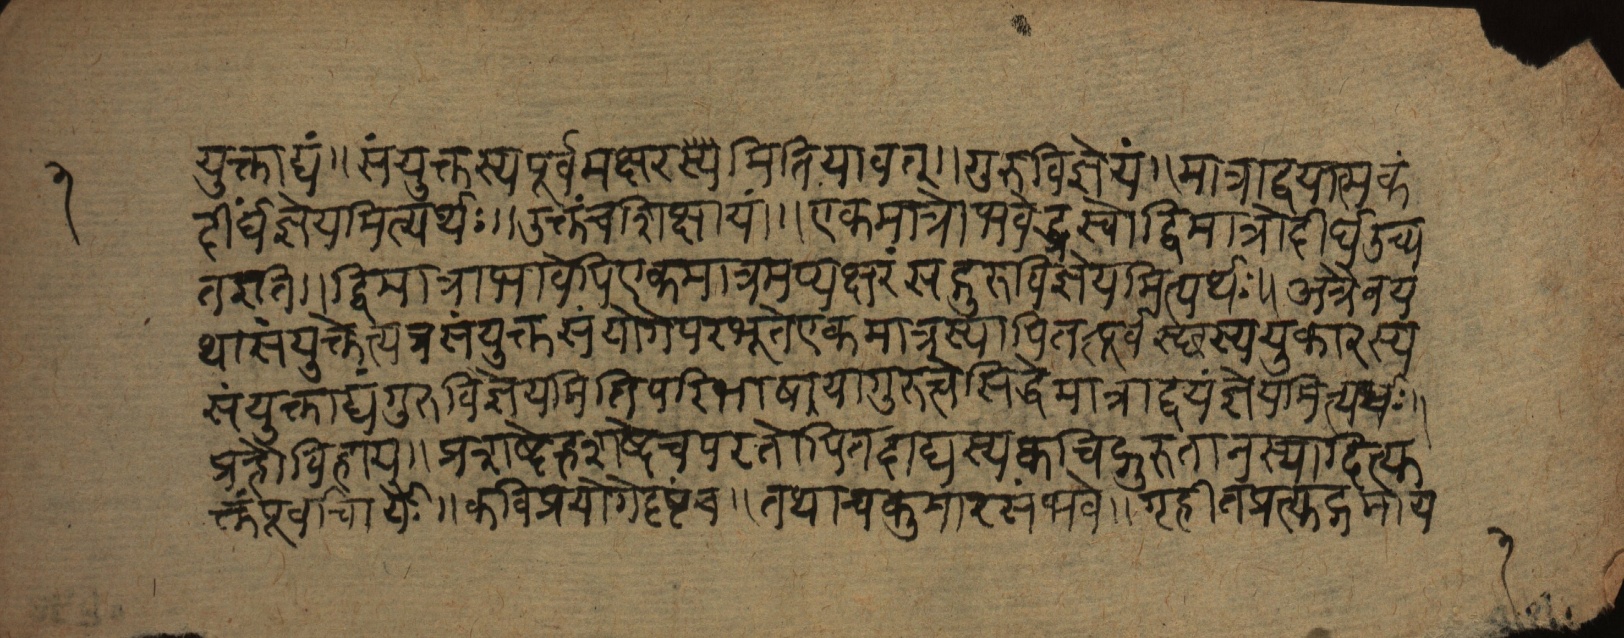 युक्ताद्यं॥ संयुक्तस्यपूर्वमक्षरस्यैमितियावत्॥ गुरुविज्ञेयं॥ मात्राद्वयात्मकं
दीर्घंज्ञेयमित्यर्थः॥ उक्तंचशिक्षायं॥ एकमात्रोभवेद्ध्रस्वोद्विमात्रोदीर्घउच्य
तइति॥ द्विमात्राभावेपिएकमात्रमप्यक्षरंसद्गुरुविज्ञेयमित्यर्थः॥ अत्रैवय
थासंयुक्तेत्यत्रसंयुक्तसंयोगेपरभूतेएकमात्रस्यापितत्पूर्व स्ययुकारस्य
संयुक्ताद्यंगुरुविज्ञेयमितिपरिभाषायागुरुत्वेसिद्धेमात्राद्वयंज्ञेयमित्यर्थः॥
प्रह्रौविहाय॥ प्रशब्देह्रशब्देचपरतोपितदाद्यस्यक्वचिद्गुरुतानस्यादित्यु
क्तंपूर्वाचार्यैः॥ कविप्रयोगेदृष्टंच॥ तथाचकुमारसंभवे॥ गृहीतप्रत्युद्गमनीय
१
१